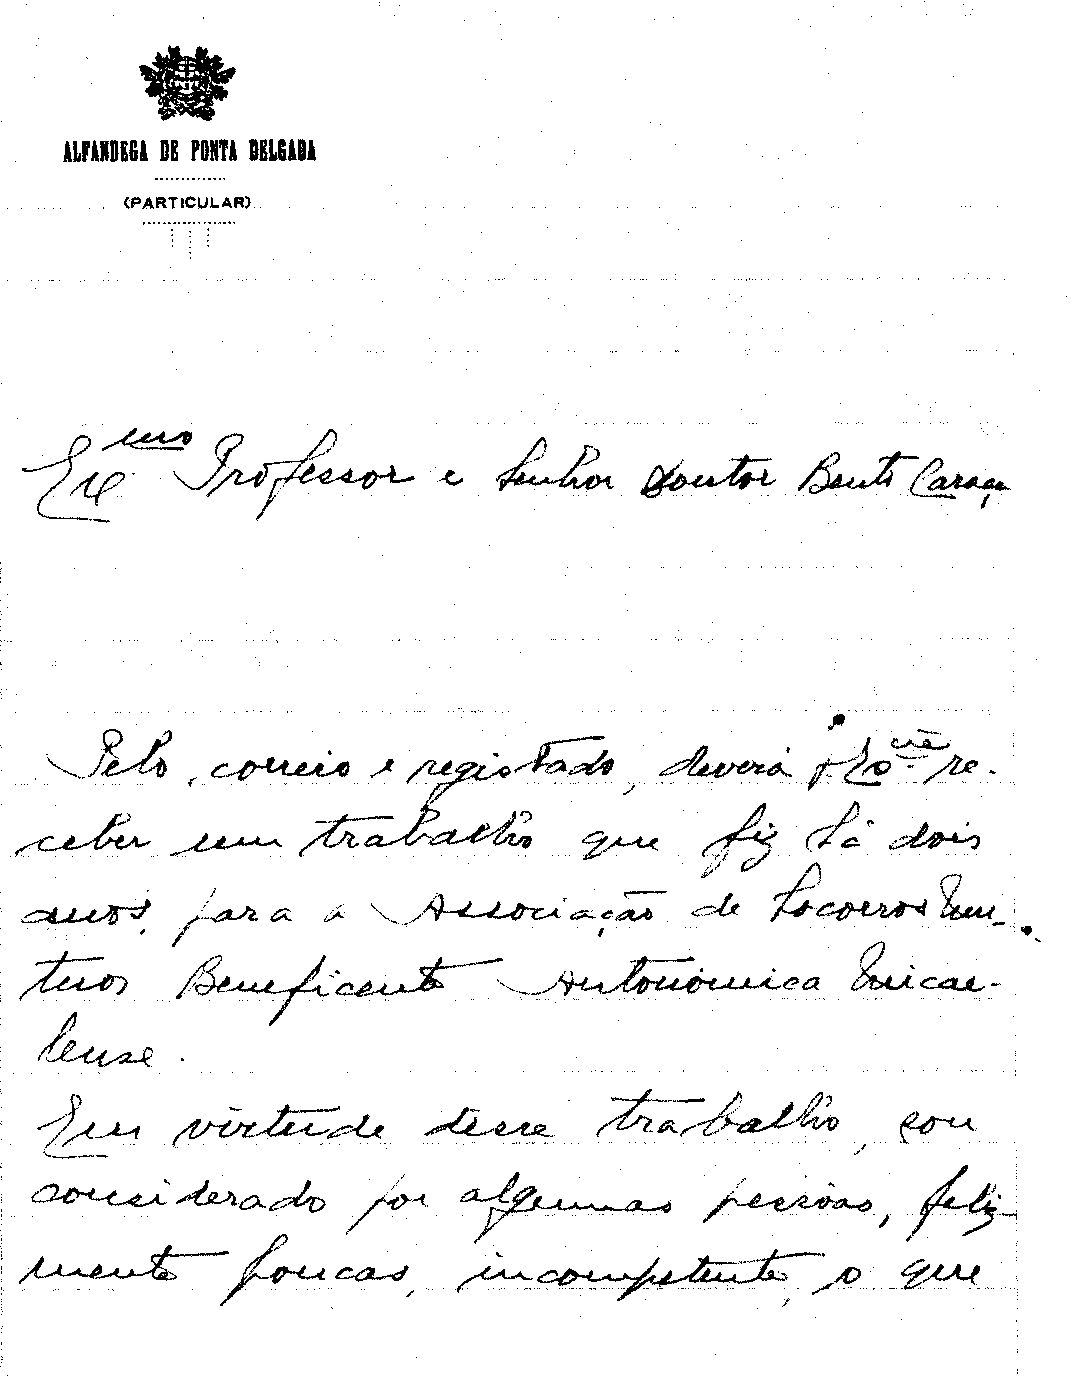 ALFANDEGA DE PONTA DELGADA
(PARTICULAR)
Exmo Professor e Senhor Doutor Bento Caraça
Pelo correio e registado, deverá V. Excia re-
ceber um trabalho que fiz há dois
anos, para a Associação de Socorros Mu-
tuos Beneficente Autonómica Micae-
lense.
Em virtude desse trabalho, sou
considerado por algumas pessoas, feliz-
mente poucas, incompetente, o que